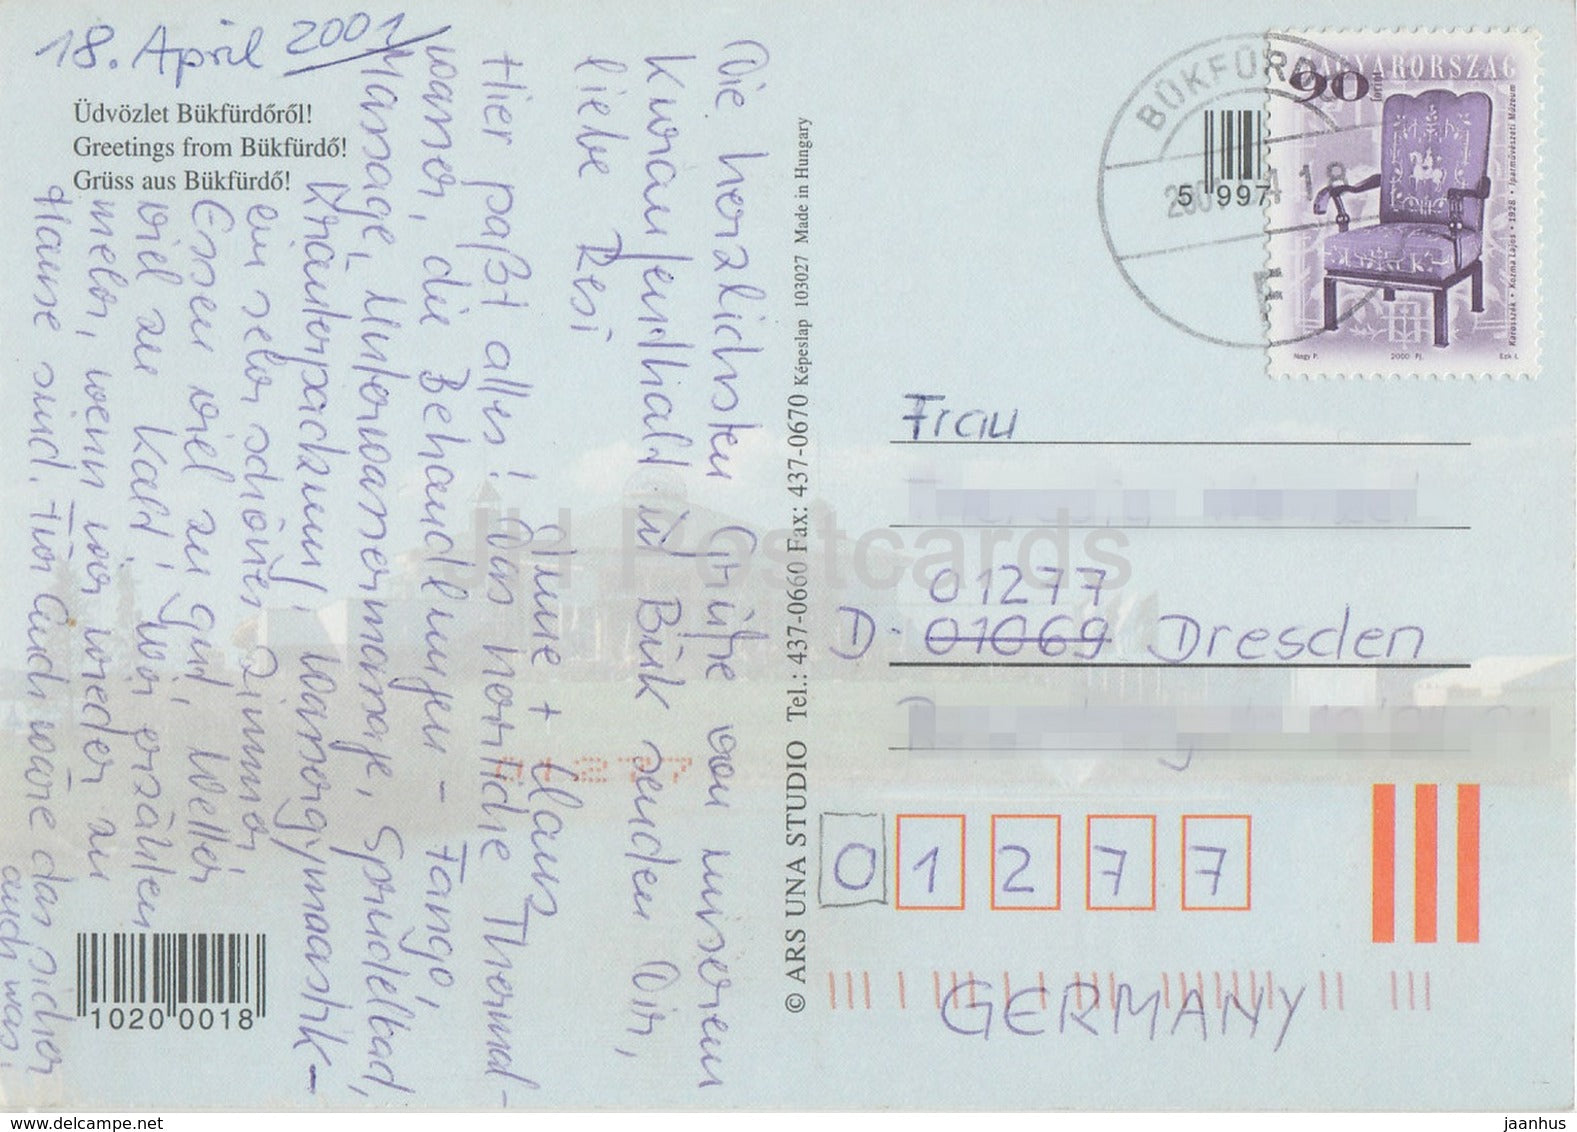 18. April 2001
Üdvözlet Bükfürdőről!
Greetings from Bükfürdő!
Grüss aus Bükfürdő!
Die herzlichsten Grüße von unserem
Kuraufenthalt in Bük senden Dir,
liebe Resi
Anne + Claus
Hier paßt alles! Das herrliche Thermal-
wasser, die Behandlungen - Fango,
Massage, Unterwassermassage, Sprudelbad,
Kräuterpackung, Wassergymnastik -
ein sehr schönes Zimmer
Essen viel zu gut, Wetter
viel zu kalt! Wir erzählen
mehr, wenn wir wieder zu
Hause sind. Für Euch wäre das sicher
auch was!
1020 0018
© ARS UNA STUDIO Tel.: 437-0660 Fax: 437-0670 Képeslap 103027 Made in Hungary
BÜKFÜRDŐ
2001 04 18
5 997
MAGYARORSZÁG
90
forint
Karosszék • Kozma Lajos • 1928 • Iparművészeti Múzeum
Nagy P. 2000 Pj. Szk I.
Frau
01277
D - 01069 Dresden
0 1 2 7 7
GERMANY
01277
JH Postcards
www.delcampe.net
jaanhus